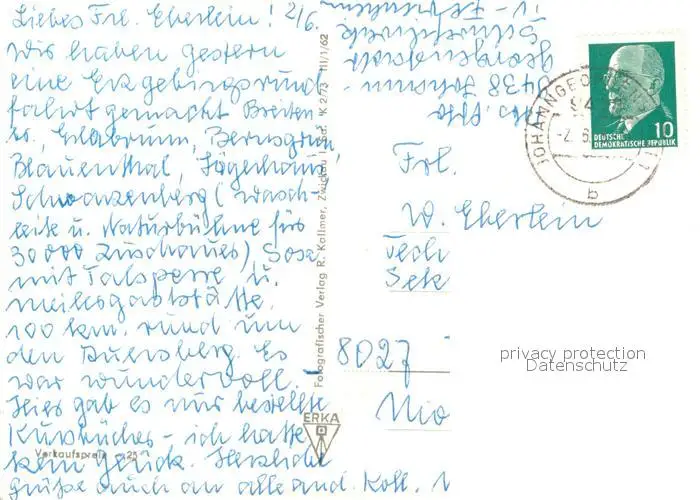 Liebes Frl. Eberlein! 2/6.
Wir haben gestern
eine Erzgebirgsrund
fahrt gemacht Breiten
Erlabrunn, Bermsgrün
Blauenthal, Jägerhaus,
Schwarzenberg (
u. Naturbühne für
30000 Zuschauer) Sosa
mit Talsperre u.
100 km. rund um
den Auersberg. Es
war wundervoll. –
Hier gab es nur bestellte
– ich hatte
kein Glück. Herzliche
Grüße auch an alle and. Koll.
Frl.
W. Eberlein
Sek
8027
Georgenstadt
9438 Johann-
Fotografischer Verlag R. Kallmer, Zwickau i. Sa. K 2/73 III/1/62
ERKA
Verkaufspreis -,25
JOHANNGEORGENSTADT
94
-2.6.
b
10
DEUTSCHE
DEMOKRATISCHE REPUBLIK
privacy protection
Datenschutz